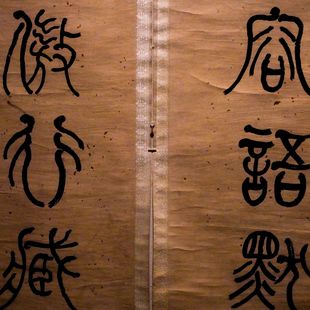 容語默
傲行藏